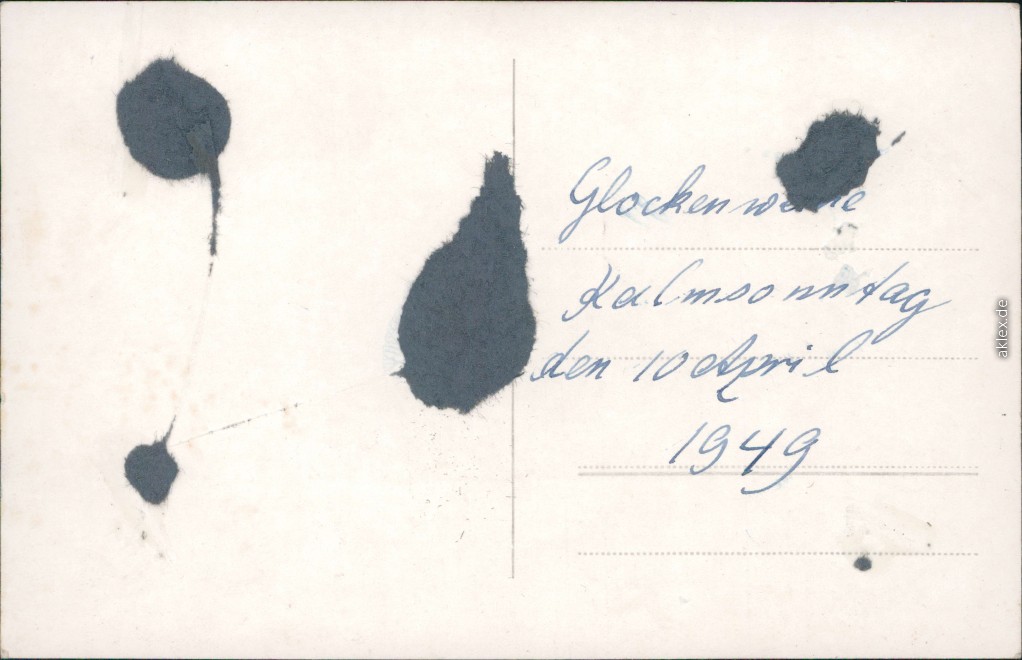 Glockenweihe
Kalmsonntag
den 10 April
1949
aklex.de